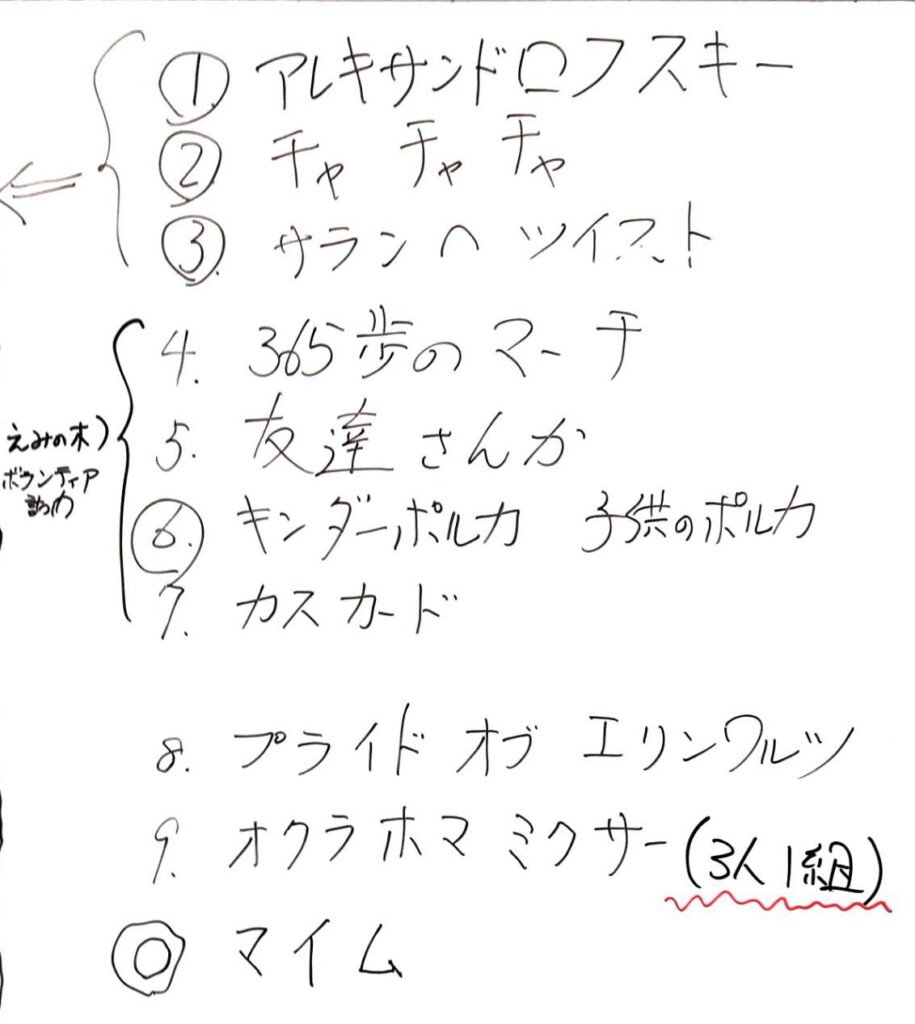 ① アレキサンドロフスキー
② チャ チャ チャ
③ サランヘ ツイスト
4. 365歩のマーチ
えみの木)
ボランティア
5. 友達さんか
⑥ キンダーポルカ 子供のポルカ
7. カスカード
8. プライド オブ エリンワルツ
9. オクラホマ ミクサー(3人1組)
◎ マイム